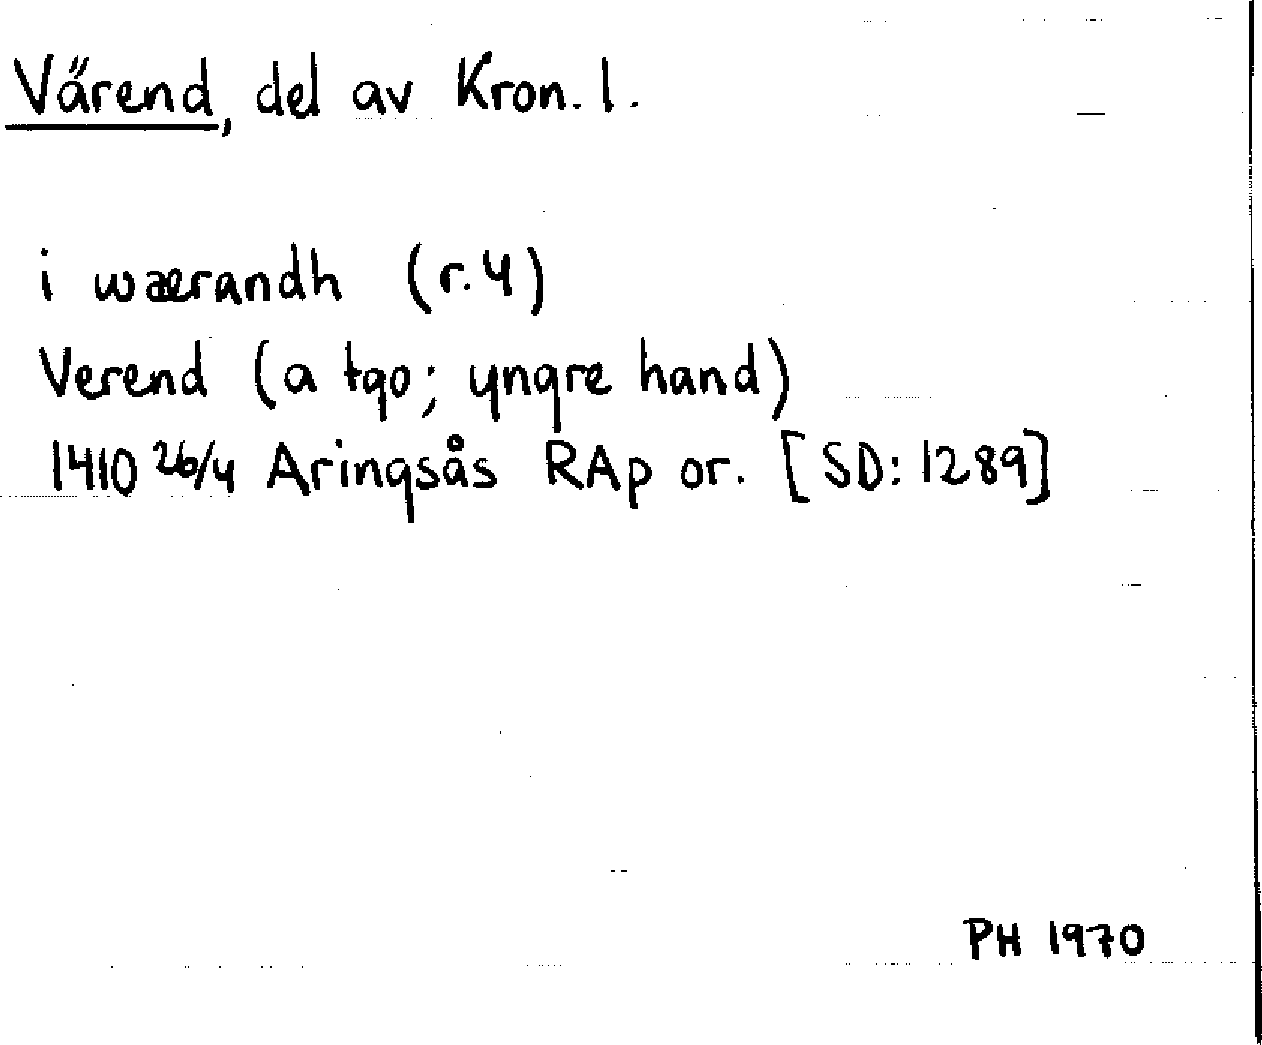 Värend, del av Kron. l.
i wærandh (r.4)
Verend (a tgo; yngre hand)
1410 26/4 Aringsås RAp or. [SD: 1289]
PH 1970